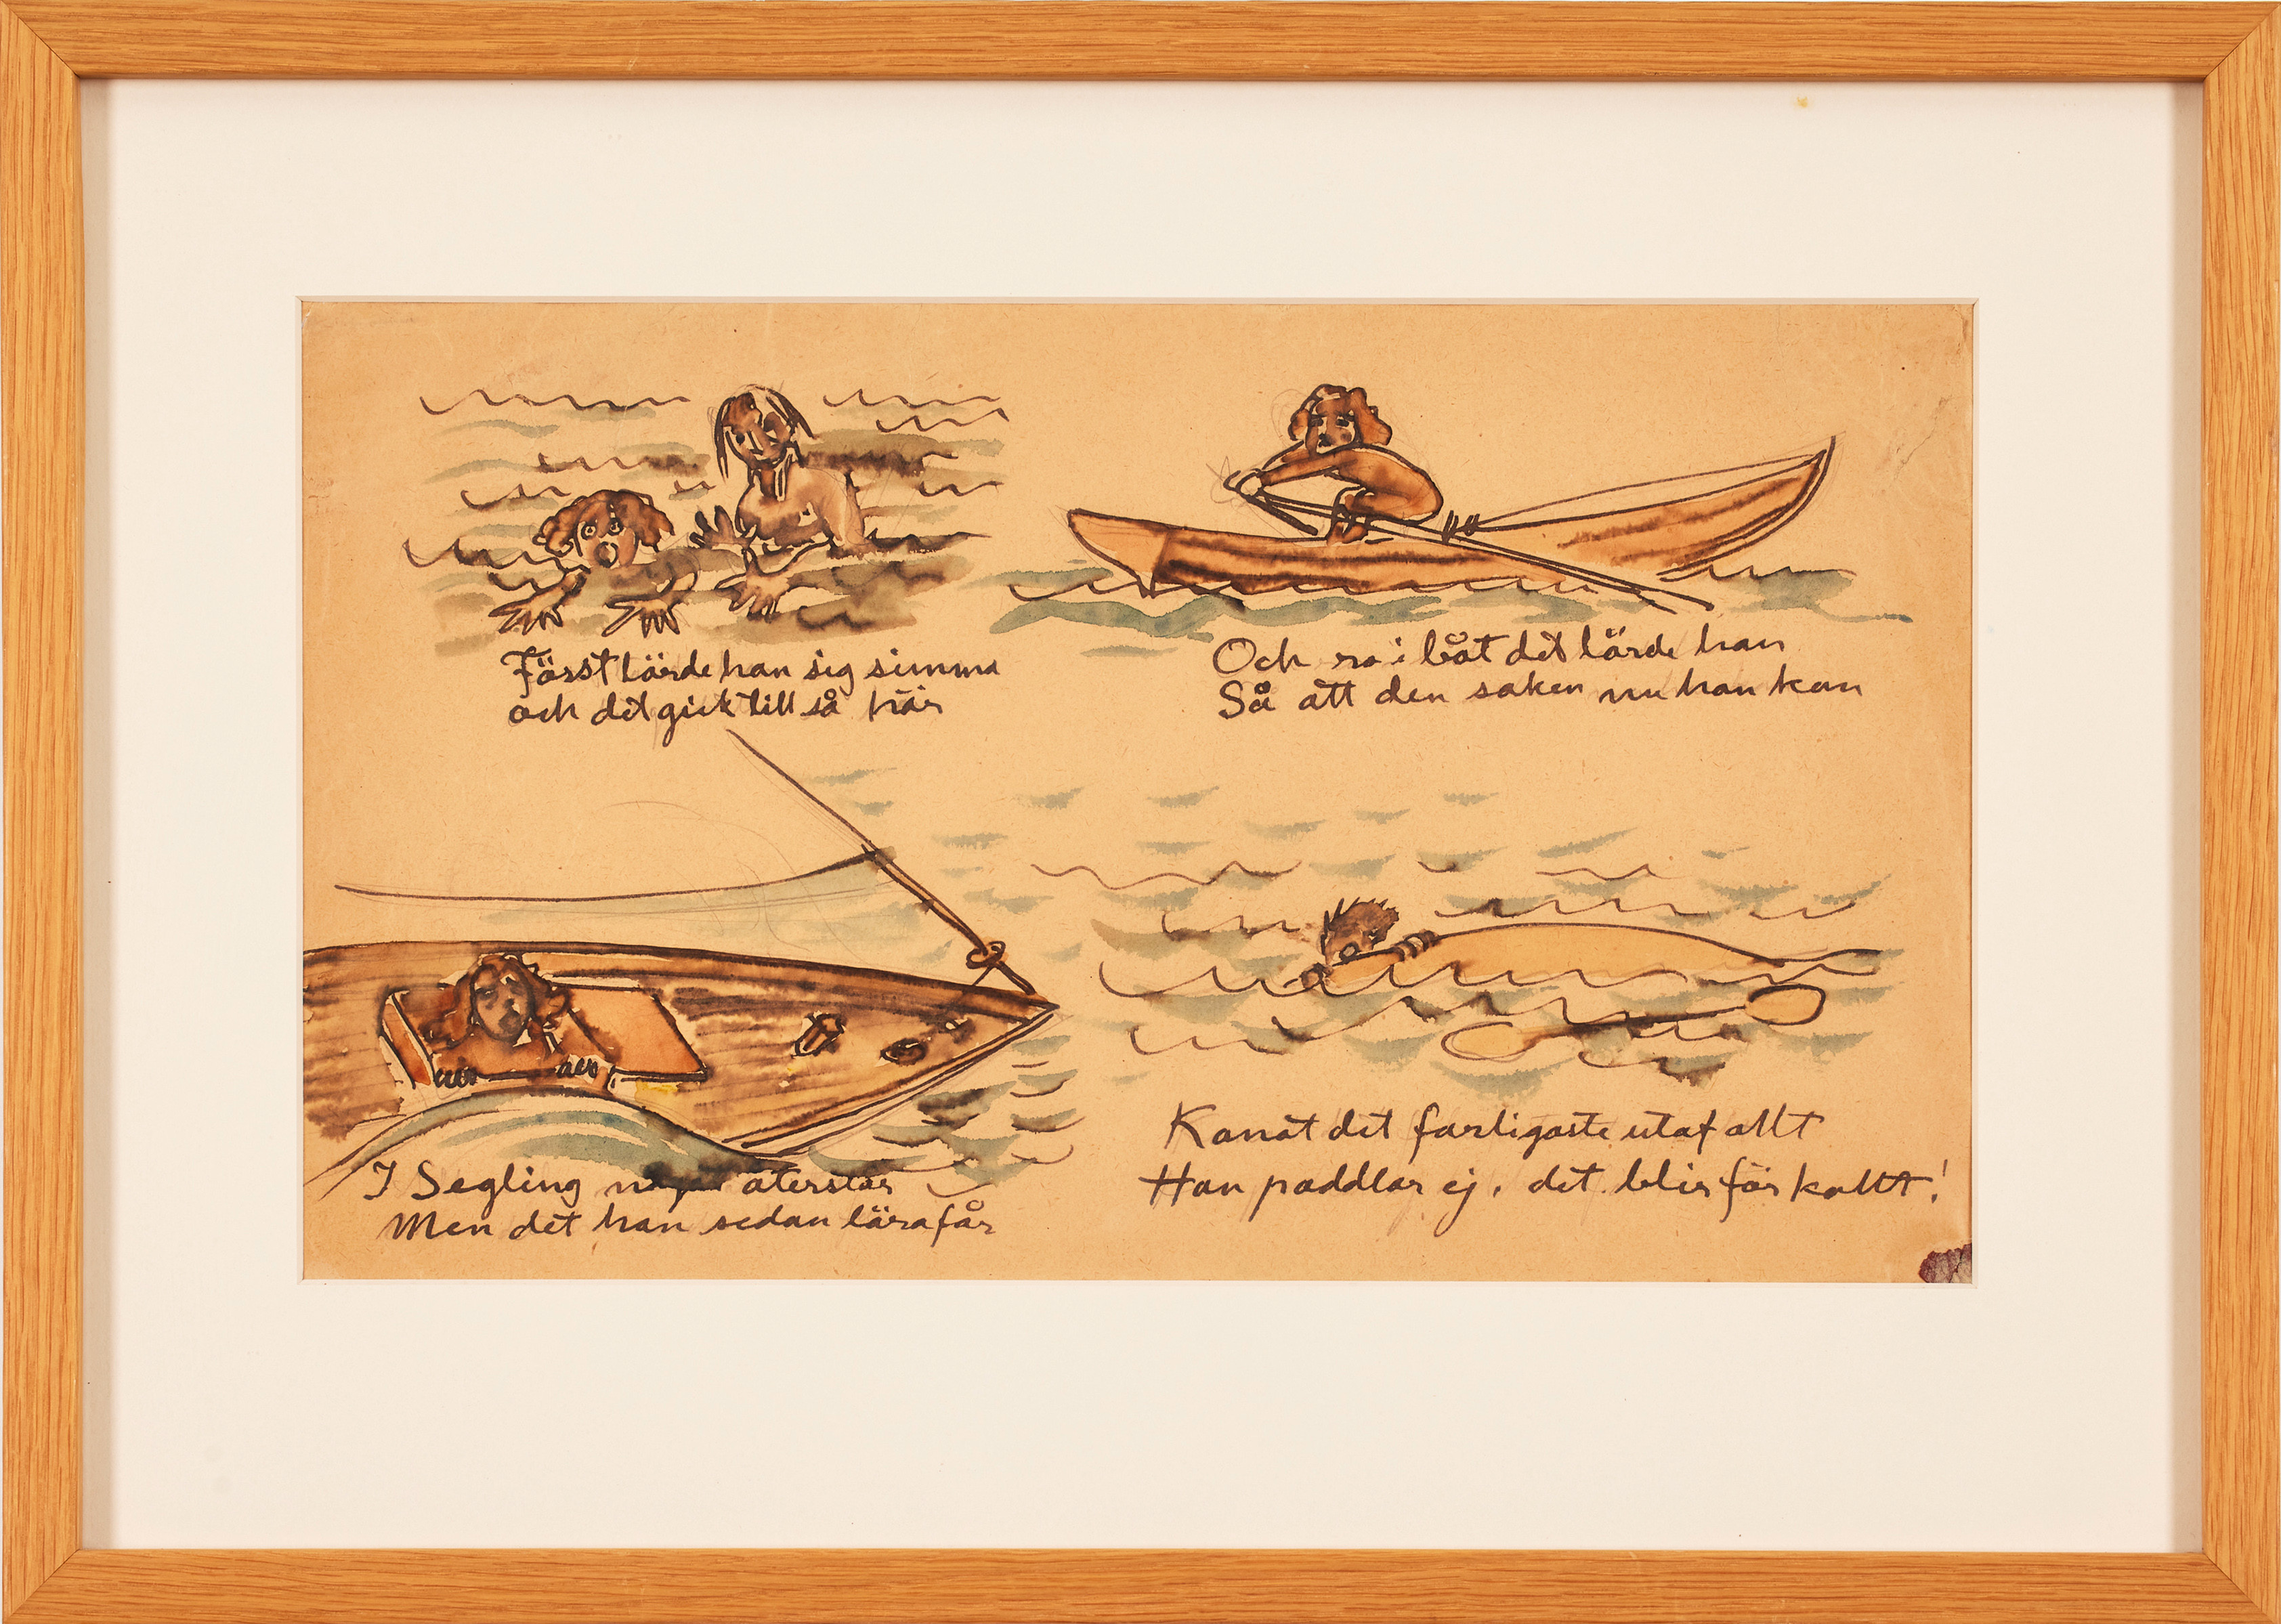 Först lärde han sig simma
och det gick till så här
Och ro i båt det lärde han
Så att den saken nu han kan
I Segling något återstår
Men det han sedan lära får
Kanot det farligaste utaf allt
Han paddlar ej, det blir för kallt!